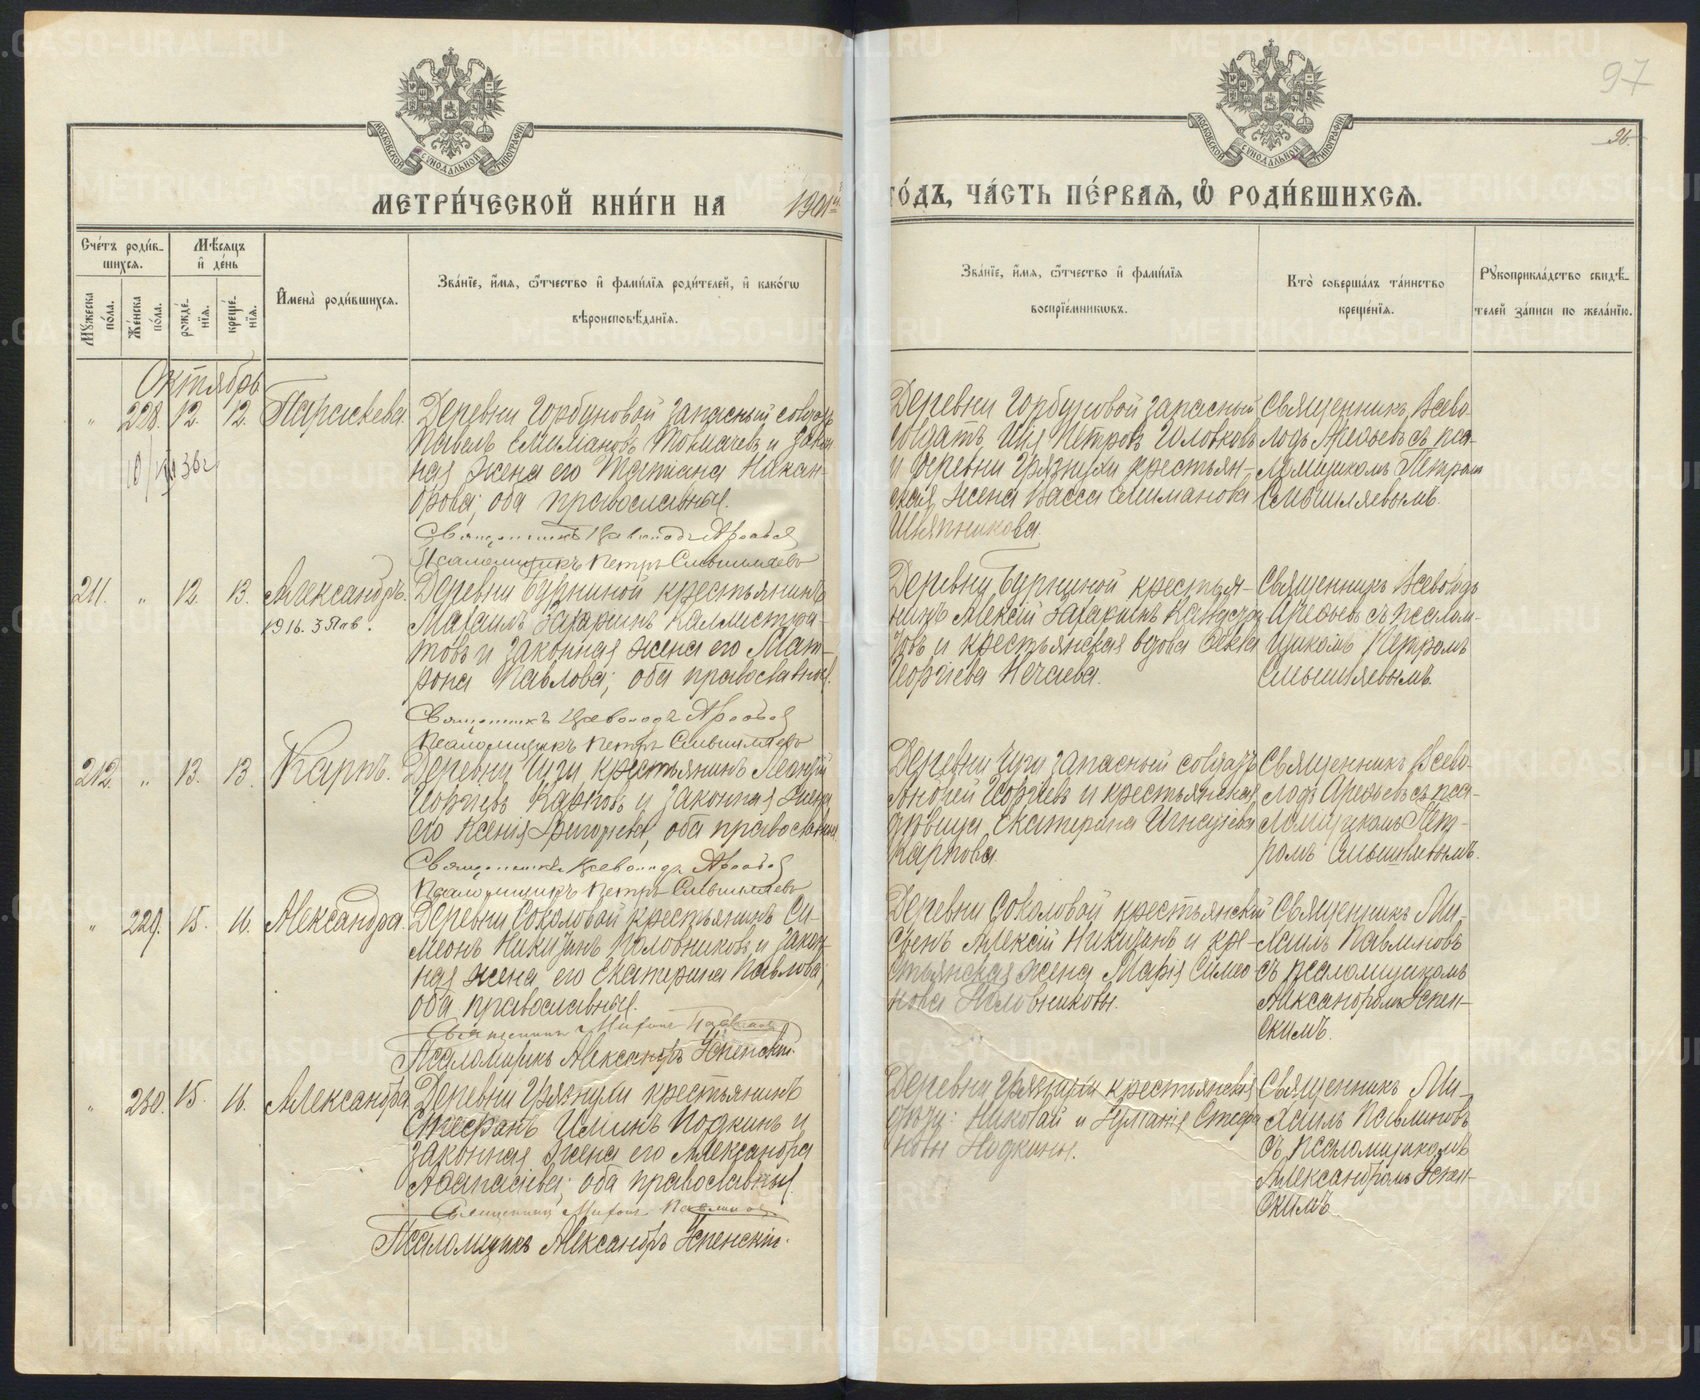 97
96.
МЕТРИ́ЧЕСКОЙ КНИ́ГИ НА 1901й
ГО́ДЪ, ЧА́СТЬ ПЕ́РВАЯ, Ѡ҆ РОДИ́ВШИХСЯ.
Сче́тъ роди́в-
шихся.
Мѣ́сяцъ
и҆ де́нь
Мꙋ́жеска
по́ла.
Же́нска
по́ла.
рожде́-
нїя.
креще́-
нїя.
И҆мена̀ роди́вшихся.
Зва́нїе, и҆́мя, ѻ҆́тчество и҆ фами́лїя роди́телей, и҆ како́гѡ
вѣроисповѣ́данїя.
Зва́нїе, и҆́мя, ѻ҆́тчество и҆ фами́лїя
воспрїе́мникѡвъ.
Кто̀ соверша́лъ та́инство
креще́нїя.
Рꙋкоприкла́дство свидѣ́-
телей за́писи по жела́нїю.
Октябрь
" 228. 12. 12. Параскева.
Деревни Горбуновой запасный солдатъ
Павелъ Симановъ Толмачевъ и закон
ная жена его Татіана Никан-
орова; оба православные.
Священникъ Всеволодъ Арефьев
Псаломщикъ Петръ Смышляевъ
Деревни Горбуновой запасный
солдатъ Илія Петровъ Головковъ
и деревни Грязнухи крестьян-
ская жена Васса Симанова
Шляпникова.
Священникъ Всево-
лодъ Арефьевъ съ пса-
ломщикомъ Петромъ
Смышляевымъ.
211. " 12. 13. Александръ.
1916. 3 Янв.
Деревни Бурниной крестьянинъ
Михаилъ Захаринъ Каллистра-
товъ и законная жена его Мат-
рона Павлова; оба православные.
Священникъ Всеволодъ Арефьев
Псаломщикъ Петръ Смышляевъ
Деревни Бурниной крестья-
нинъ Алексій Захаринъ
и крестьянская вдова
Георгіева Нечаева.
Священникъ Всеволодъ
Арефьевъ съ псалом-
щикомъ Петромъ
Смышляевымъ.
212. " 13. 13. Карпъ.
Деревни крестьянинъ Леонтій
Георгіевъ Карповъ и законная жена
его Ксенія Григорьева, оба православные
Священникъ Всеволодъ Арефьев
Псаломщикъ Петръ Смышляевъ
Деревни запасный солдатъ
Андрей Георгіевъ и крестьянская
дѣвица Екатерина Игнатіева
Карповы.
Священникъ Всево-
лодъ Арефьевъ съ пса-
ломщикомъ Пет-
ромъ Смышляевымъ.
" 229. 15. 16. Александра.
Деревни Соколовой крестьянинъ Си-
меонъ Никитинъ Половниковъ и закон-
ная жена его Екатерина Павлова;
оба православные.
Священникъ Михаилъ Павлиновъ
Псаломщикъ Александръ Успенскій.
Деревни Соколовой крестьянскій
сынъ Алексій Никитинъ и кре-
стьянская жена Марія Симео-
нова Половниковы.
Священникъ Ми-
хаилъ Павлиновъ
съ псаломщикомъ
Александромъ Успен-
скимъ.
" 230. 15. 16. Александра
Деревни Грязнухи крестьянинъ
Стефанъ и
законная жена его Александра
Аѳанасіева; оба православные.
Священникъ Михаилъ Павлиновъ
Псаломщикъ Александръ Успенскій.
Деревни Грязнухи крестьянскія
дѣти: Николай и Іуліанія Стефа
новы
Священникъ Ми-
хаилъ Павлиновъ
съ псаломщикомъ
Александромъ Успен-
скимъ.
METRIKI.GASO-URAL.RU